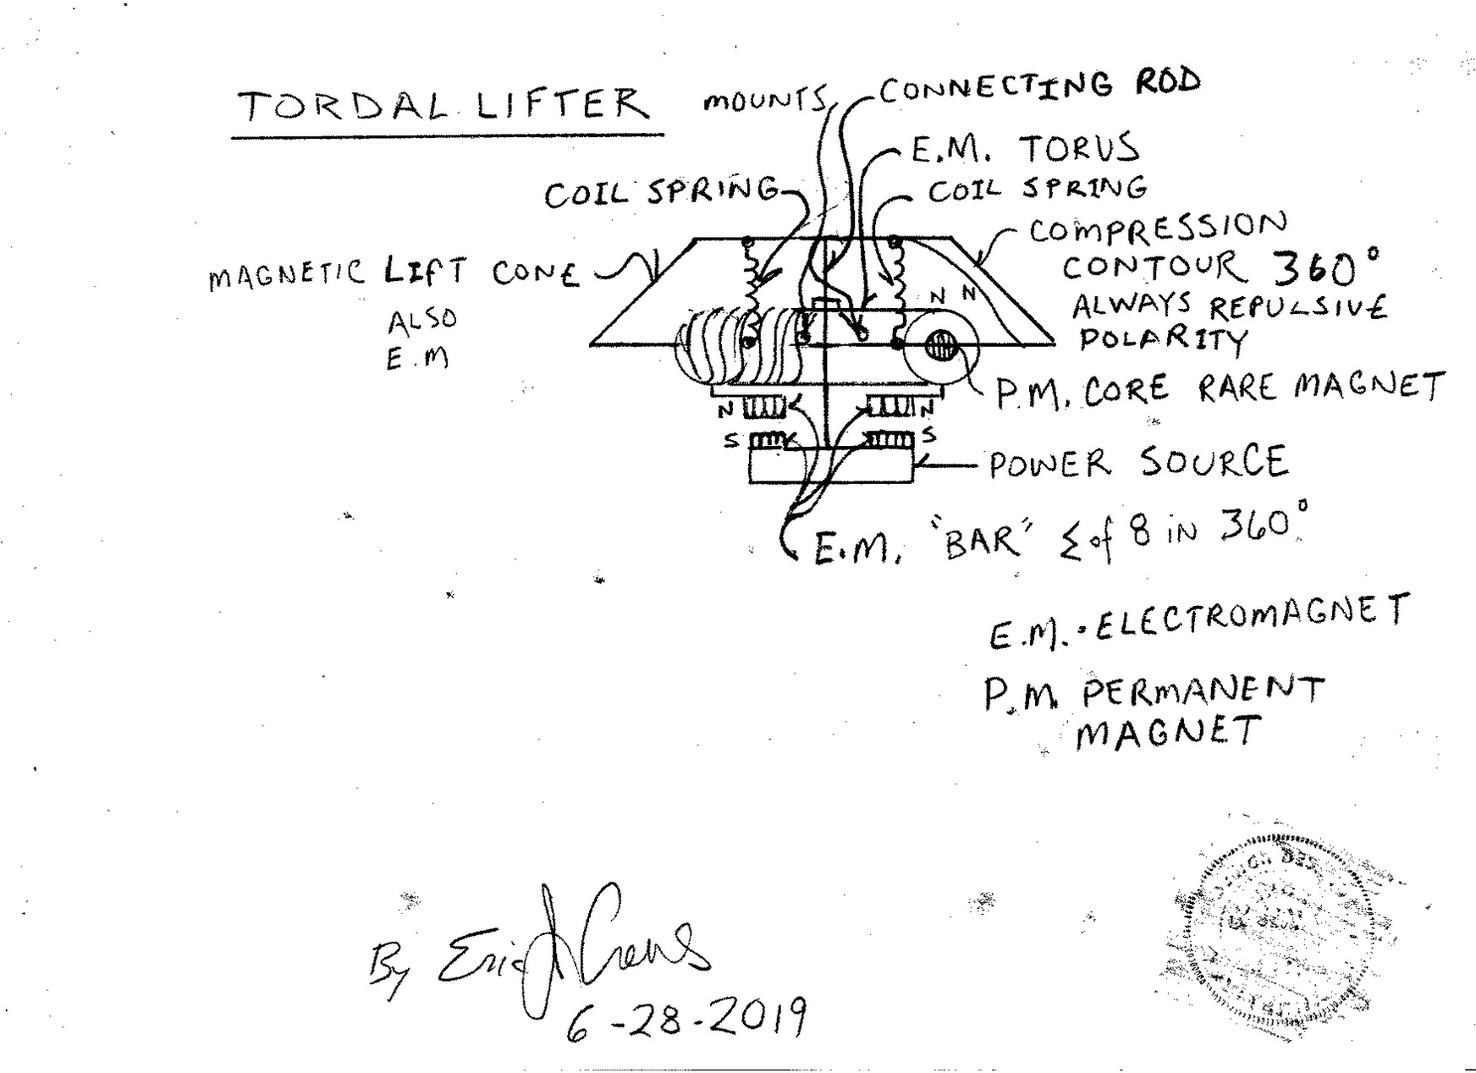 TORDAL LIFTER
MOUNTS
CONNECTING ROD
E.M. TORUS
COIL SPRING
COIL SPRING
COMPRESSION
CONTOUR 360°
ALWAYS REPULSIVE
POLARITY
MAGNETIC LIFT CONE
ALSO
E.M
N N
P.M. CORE RARE MAGNET
N N
S S
POWER SOURCE
E.M. "BAR" Σ of 8 IN 360°
E.M. • ELECTROMAGNET
P.M. PERMANENT
MAGNET
By Eric J Crews
6-28-2019